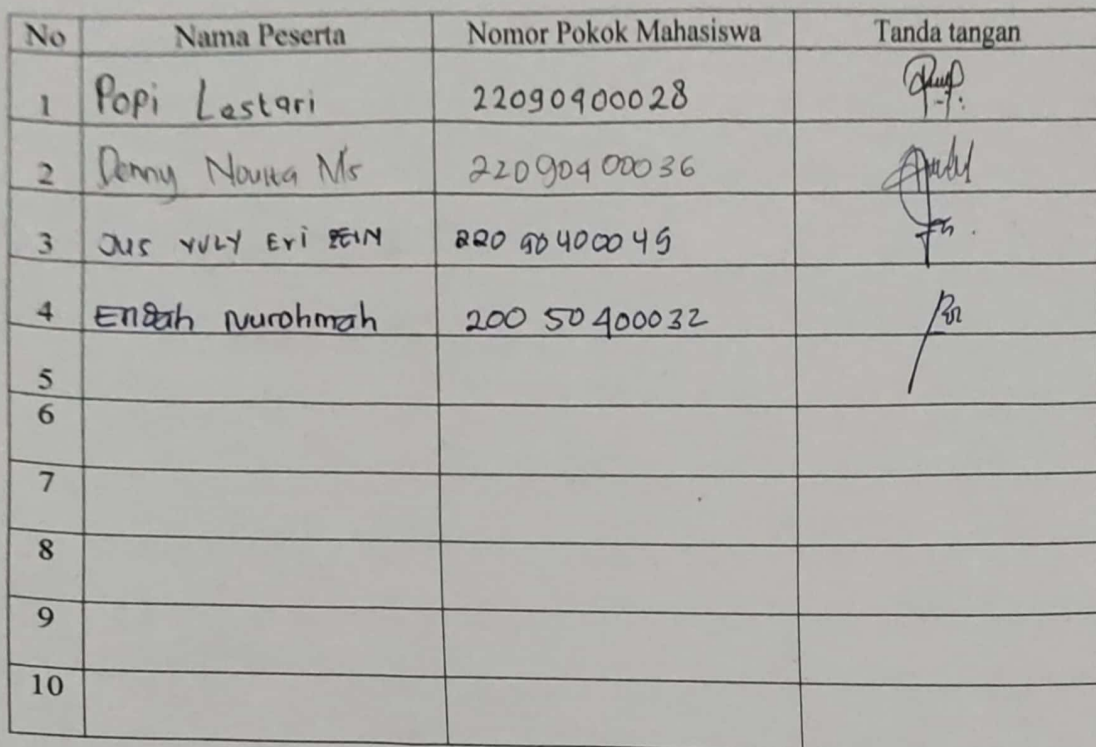 No Nama Peserta Nomor Pokok Mahasiswa Tanda tangan
1 Popi Lestari 22090900028
2 Denny Novita Ms 22090400036
3 Jus YULY Eri ZEIN 220 90400049
4 Endah Nurohmah 200 50400032
5
6
7
8
9
10